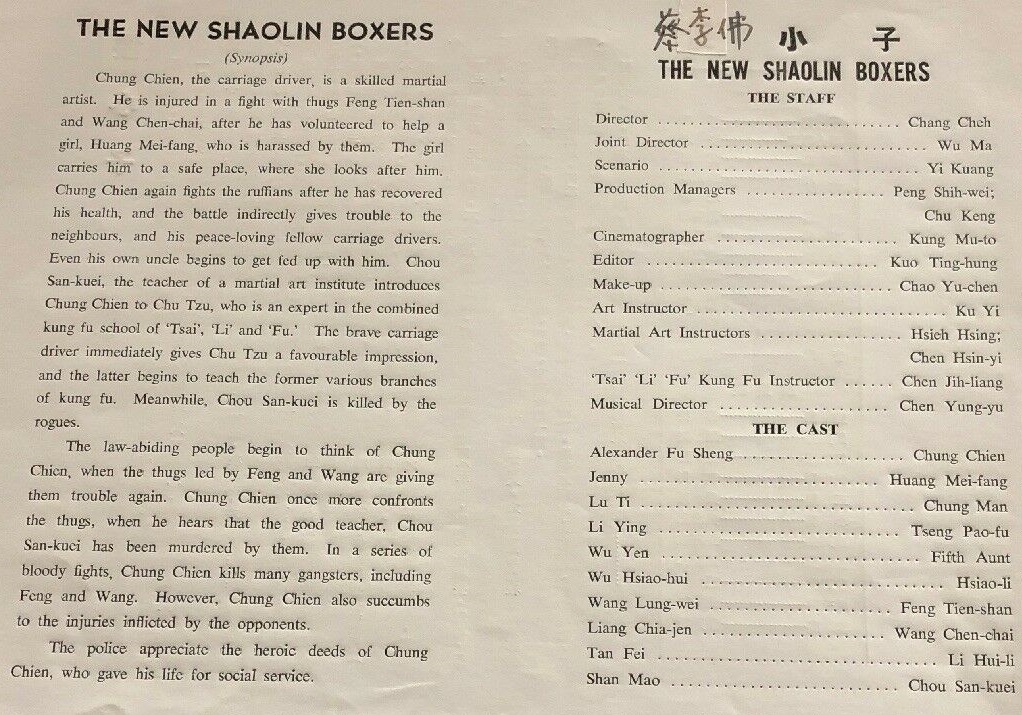 THE NEW SHAOLIN BOXERS
(Synopsis)
Chung Chien, the carriage driver, is a skilled martial
artist. He is injured in a fight with thugs Feng Tien-shan
and Wang Chen-chai, after he has volunteered to help a
girl, Huang Mei-fang, who is harassed by them. The girl
carries him to a safe place, where she looks after him.
Chung Chien again fights the ruffians after he has recovered
his health, and the battle indirectly gives trouble to the
neighbours, and his peace-loving fellow carriage drivers.
Even his own uncle begins to get fed up with him. Chou
San-kuei, the teacher of a martial art institute introduces
Chung Chien to Chu Tzu, who is an expert in the combined
kung fu school of 'Tsai', 'Li' and 'Fu.' The brave carriage
driver immediately gives Chu Tzu a favourable impression,
and the latter begins to teach the former various branches
of kung fu. Meanwhile, Chou San-kuei is killed by the
rogues.
The law-abiding people begin to think of Chung
Chien, when the thugs led by Feng and Wang are giving
them trouble again. Chung Chien once more confronts
the thugs, when he hears that the good teacher, Chou
San-kuei has been murdered by them. In a series of
bloody fights, Chung Chien kills many gangsters, including
Feng and Wang. However, Chung Chien also succumbs
to the injuries inflicted by the opponents.
The police appreciate the heroic deeds of Chung
Chien, who gave his life for social service.
蔡李佛 小 子
THE NEW SHAOLIN BOXERS
THE STAFF
Director .............................. Chang Cheh
Joint Director .............................. Wu Ma
Scenario .............................. Yi Kuang
Production Managers .................. Peng Shih-wei;
Chu Keng
Cinematographer ........................ Kung Mu-to
Editor .............................. Kuo Ting-hung
Make-up .............................. Chao Yu-chen
Art Instructor .............................. Ku Yi
Martial Art Instructors .................. Hsieh Hsing;
Chen Hsin-yi
'Tsai' 'Li' 'Fu' Kung Fu Instructor ...... Chen Jih-liang
Musical Director ...................... Chen Yung-yu
THE CAST
Alexander Fu Sheng .................... Chung Chien
Jenny .............................. Huang Mei-fang
Lu Ti .............................. Chung Man
Li Ying .............................. Tseng Pao-fu
Wu Yen .............................. Fifth Aunt
Wu Hsiao-hui .............................. Hsiao-li
Wang Lung-wei ...................... Feng Tien-shan
Liang Chia-jen ...................... Wang Chen-chai
Tan Fei .............................. Li Hui-li
Shan Mao .............................. Chou San-kuei